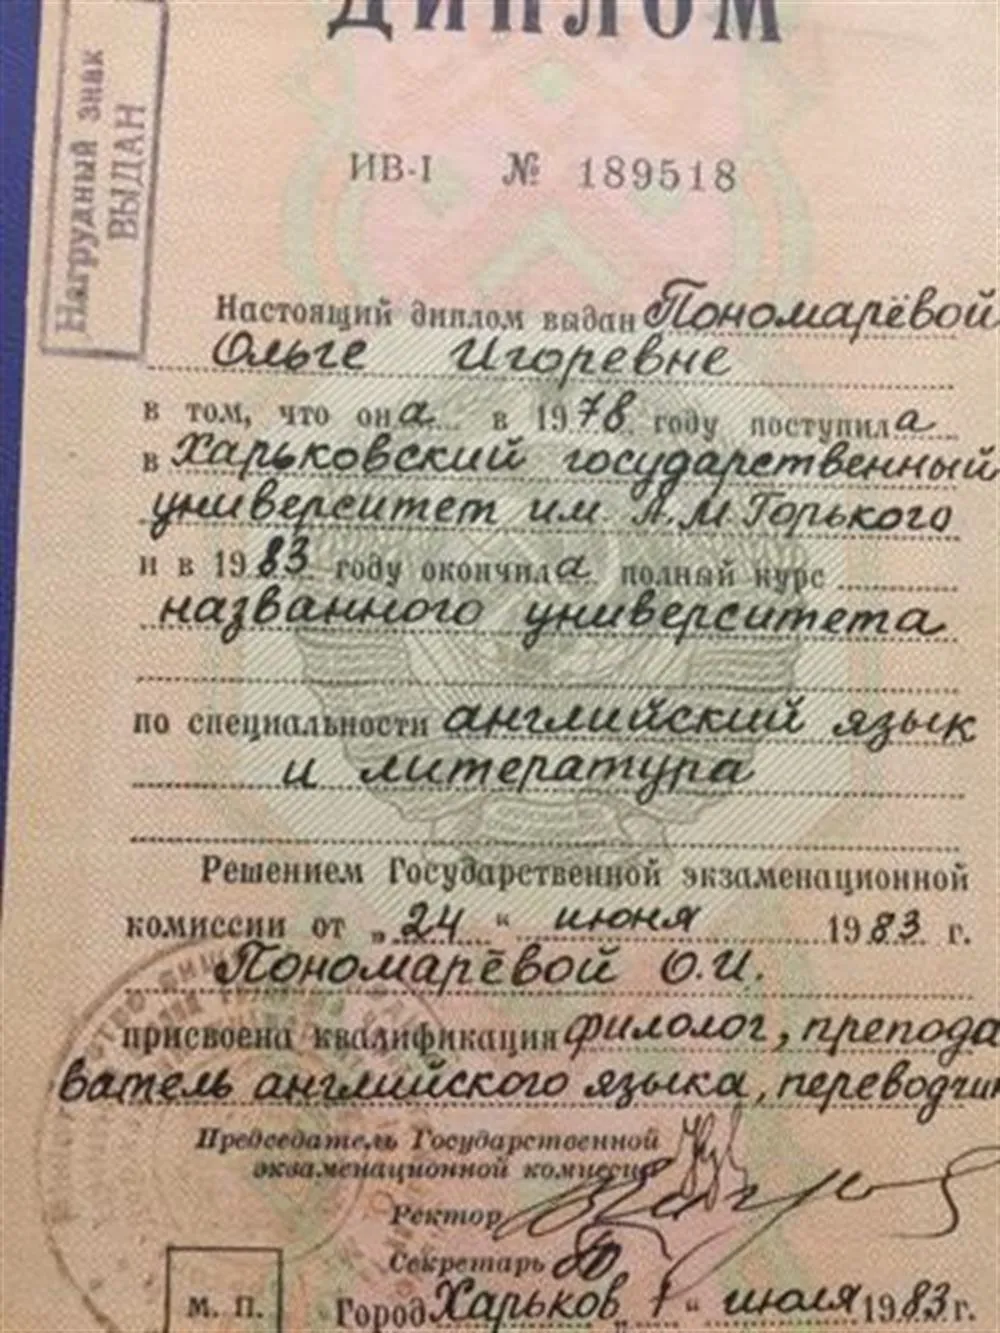 ДИПЛОМ
Нагрудный знак
ВЫДАН
ИВ-I № 189518
Настоящий диплом выдан Пономарёвой
Ольге Игоревне
в том, что она в 1978 году поступила
в Харьковский государственный
университет им. А.М.Горького
и в 1983 году окончила полный курс
названного университета
по специальности английский язык
и литература
Решением Государственной экзаменационной
комиссии от „24“ июня 1983 г.
Пономарёвой О.И.
присвоена квалификация филолог, препода
ватель английского языка, переводчик
Председатель Государственной
экзаменационной комиссии
Ректор
Секретарь
М. П. Город Харьков „1“ июля 1983 г.